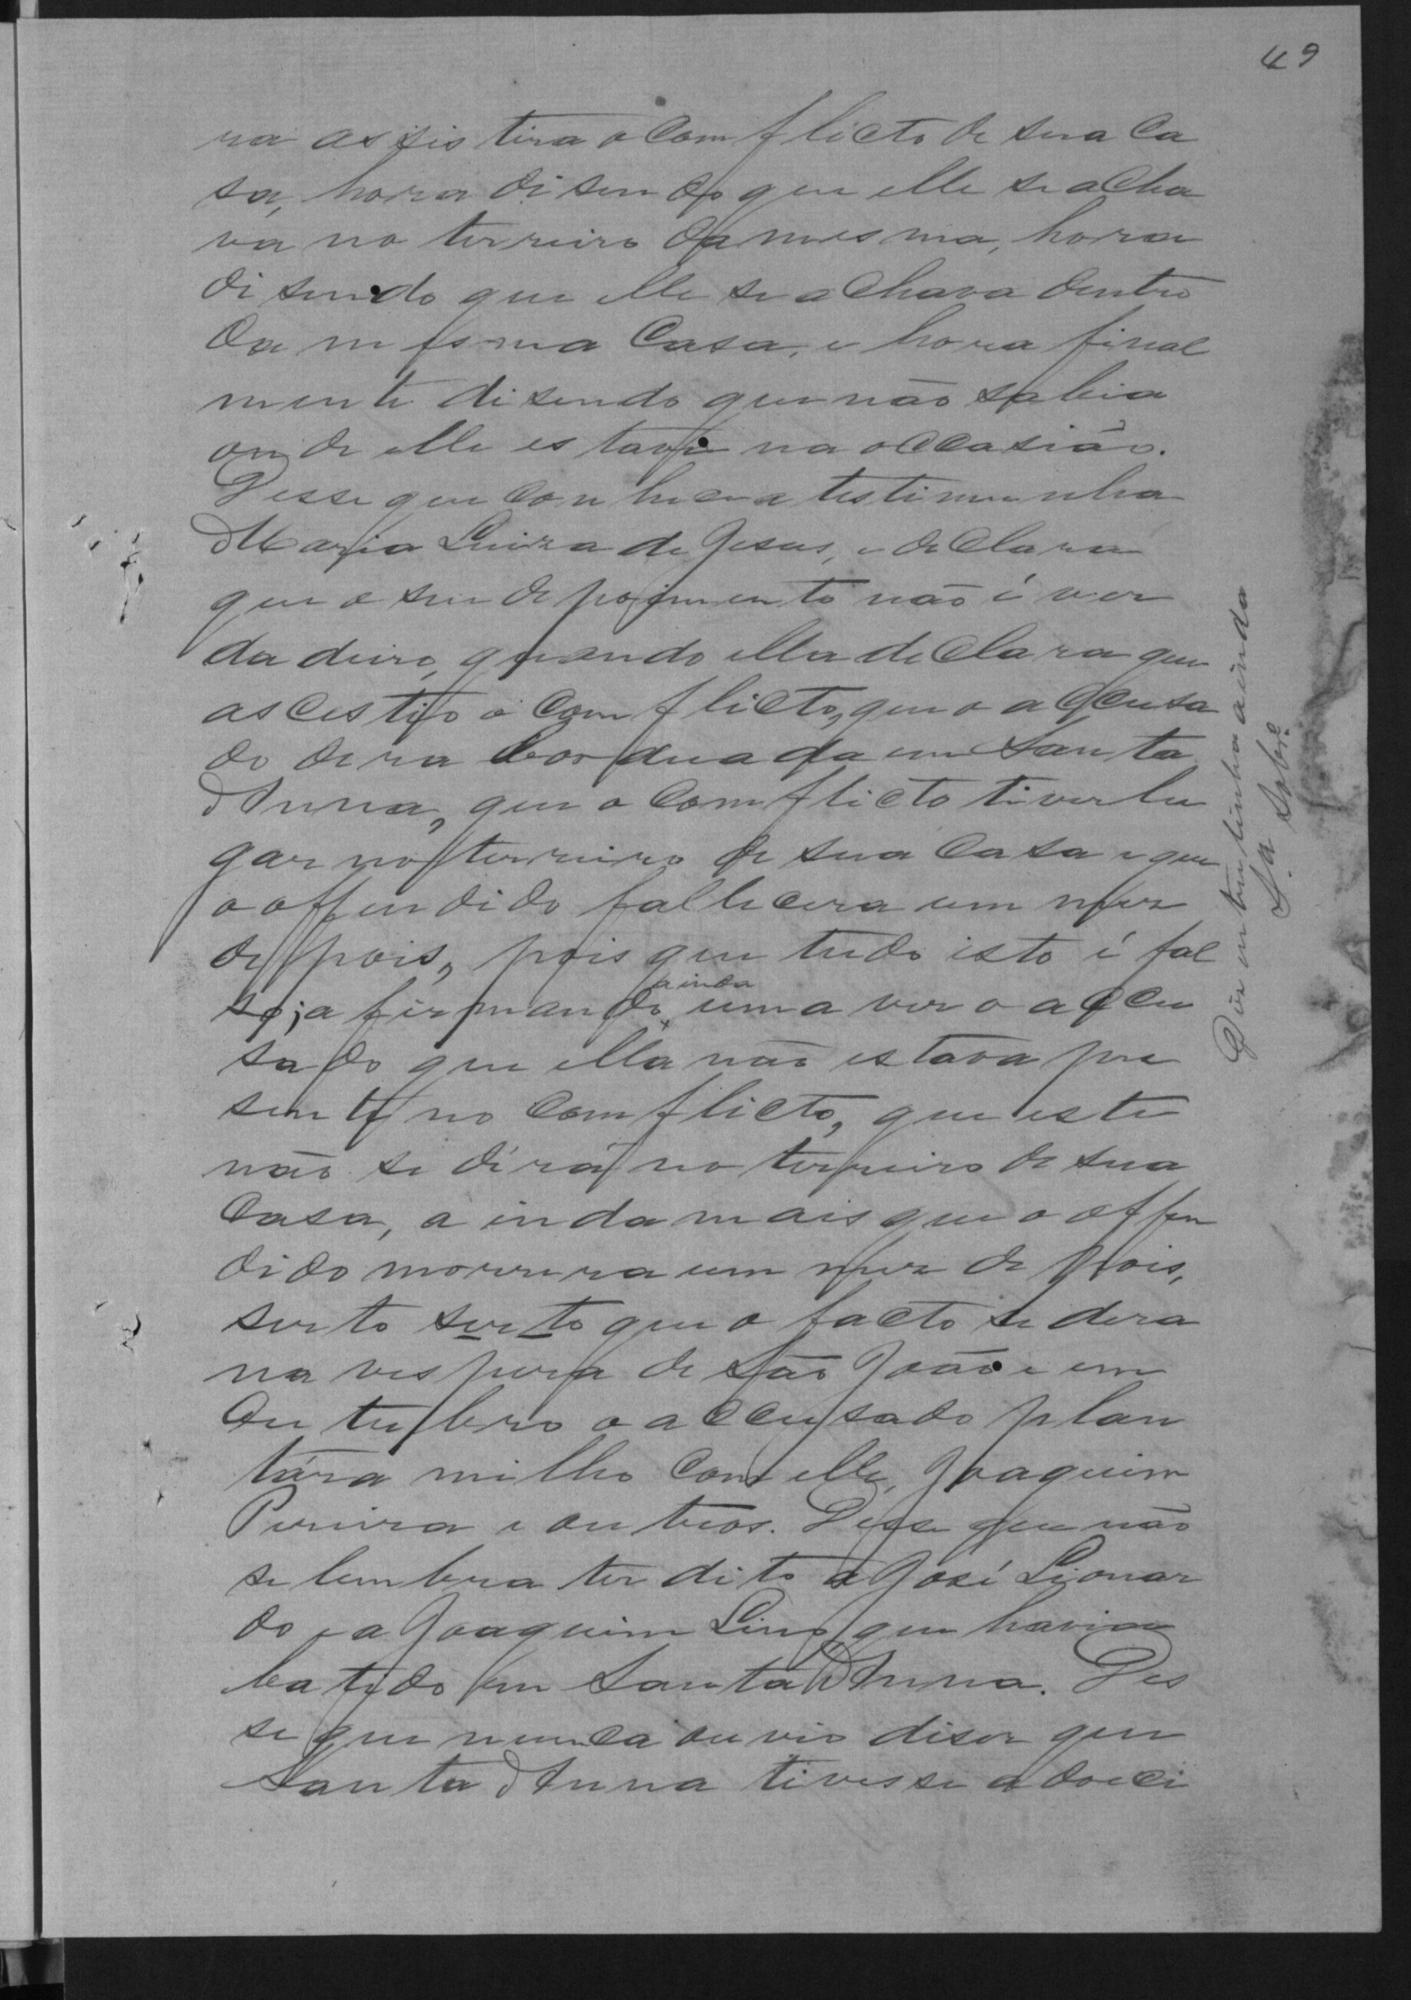 49
ra assistira o comflicto de sua ca
sa, hora disendo que elle se acha
va no terreiro da mesma, hora
disendo que elle se achava dentro
da mesma casa, e hora final
mente disendo que não sabia
onde elle estava na occasião.
Disse que conhece a testimunha
Maria Luiza de Jesus, e declara
que o seu depoimento não é ver
dadeiro, quando ella declara que
ascestio o comflicto, que o accusa
do dera borduada em Santa
Anna, que o comflicto tiver lu
gar no terreiro de sua casa e que
o offendido fallecera um mez
depois, pois que tudo isto é fal
so; afirmando ainda uma vez o accu
sado que ella não estava pre
sente no comflicto, que este
não se dirá no terreiro de sua
casa, ainda mais que o offen
dido morrera um mez depois,
serto serto que o facto se dera
na vespera de São João e em
Outubro o accusado plan
tára milho com elle, Joaquim
Pereira e outros. Disse que não
se lembra ter dito a José Lionar
do e a Joaquim Lino que havia
batido em Santa Anna. Dis
se que nunca ouvio diser que
Santa Anna tivesse adoeci
Diz entrelinha ainda